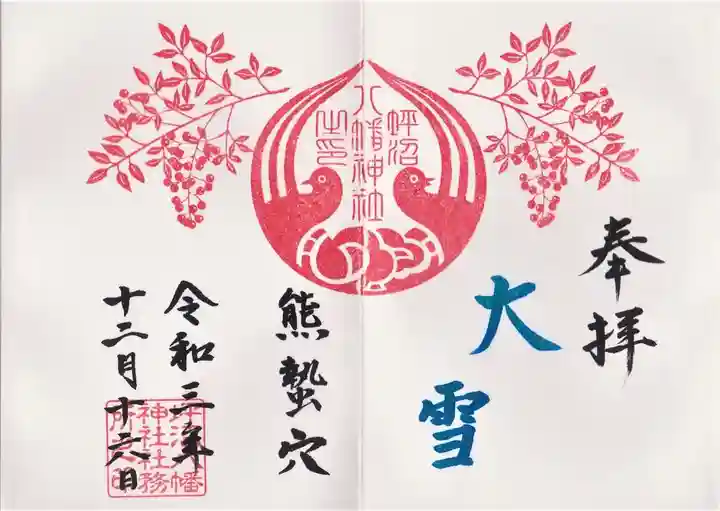 奉拝
大雪
坪沼
八幡神社
之印
熊蟄穴
令和三年
十二月十六日
坪沼八幡
神社社務
所之印